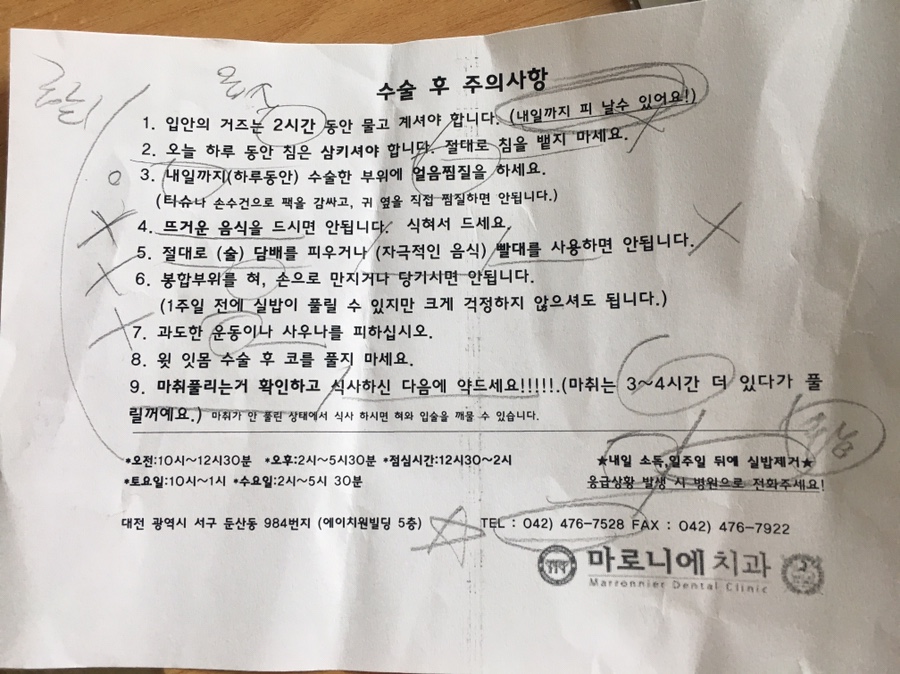 수술 후 주의사항
1. 입안의 거즈는 2시간 동안 물고 계셔야 합니다. (내일까지 피 날수 있어요!)
2. 오늘 하루 동안 침은 삼키셔야 합니다. 절대로 침을 뱉지 마세요.
3. 내일까지(하루동안) 수술한 부위에 얼음찜질을 하세요.
(티슈나 손수건으로 팩을 감싸고, 귀 옆을 직접 찜질하면 안됩니다.)
4. 뜨거운 음식을 드시면 안됩니다. 식혀서 드세요.
5. 절대로 (술) 담배를 피우거나 (자극적인 음식) 빨대를 사용하면 안됩니다.
6. 봉합부위를 혀, 손으로 만지거나 당기시면 안됩니다.
(1주일 전에 실밥이 풀릴 수 있지만 크게 걱정하지 않으셔도 됩니다.)
7. 과도한 운동이나 사우나를 피하십시오.
8. 윗 잇몸 수술 후 코를 풀지 마세요.
9. 마취풀리는거 확인하고 식사하신 다음에 약드세요!!!!!.(마취는 3~4시간 더 있다가 풀
릴꺼예요.) 마취가 안 풀린 상태에서 식사 하시면 혀와 입술을 깨물 수 있습니다.
*오전:10시~12시30분 *오후:2시~5시30분 *점심시간:12시30~2시
*토요일:10시~1시 *수요일:2시~5시 30분
★내일 소독,일주일 뒤에 실밥제거★
응급상황 발생 시 병원으로 전화주세요!
대전 광역시 서구 둔산동 984번지 (에이치원빌딩 5층) TEL : 042) 476-7528 FAX : 042) 476-7922
마로니에치과
Marronnier Dental Clinic